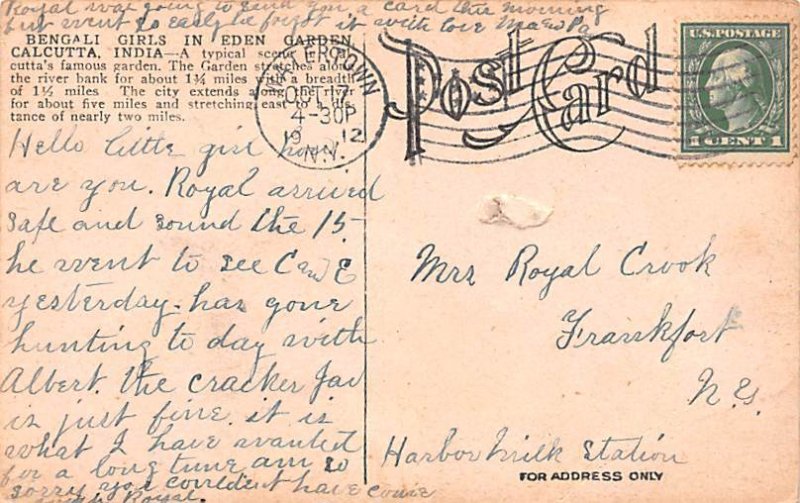 Royal was going to send you a card this morning
but went so early he forgot it with love Ma & Pa
BENGALI GIRLS IN EDEN GARDEN,
CALCUTTA, INDIA—A typical scene in Cal-
cutta's famous garden. The Garden stretches along
the river bank for about 1¾ miles with a breadth
of 1½ miles. The city extends along the river
for about five miles and stretching east to a dis-
tance of nearly two miles.
WATERTOWN
OCT 17
4-30P
1912
N.Y.
Post Card
U.S. POSTAGE
1 CENT 1
Hello little girl how
are you. Royal arrived
safe and sound the 15
he went to see C and E
yesterday. has gone
hunting to day with
Albert. the cracker Jar
is just fine. it is
what I have wanted
for a long time am so
sorry you couldent have come
with Royal.
Mrs Royal Crook
Frankfort
N.Y.
Harbor Milk Station
FOR ADDRESS ONLY